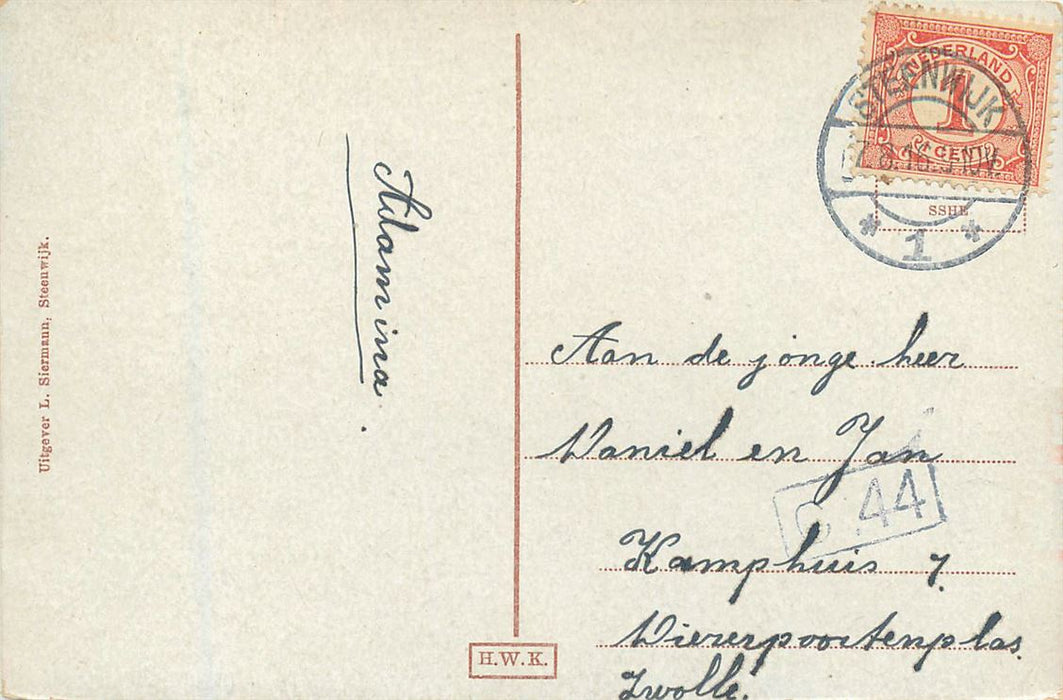 Uitgever L. Siermann, Steenwijk.
Adamina.
H.W.K.
NEDERLAND
1
CENT
STEENWIJK
1
SSHE
Aan de jonge heer
Daniel en Jan
44
Kamphuis 7.
Diezerpoortenplas
Zwolle.